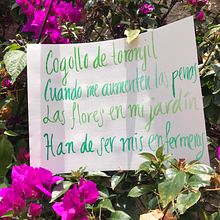 Cogollo de toronjil
Cuando me aumenten las penas
Las flores en mi jardín
Han de ser mis enfermeras